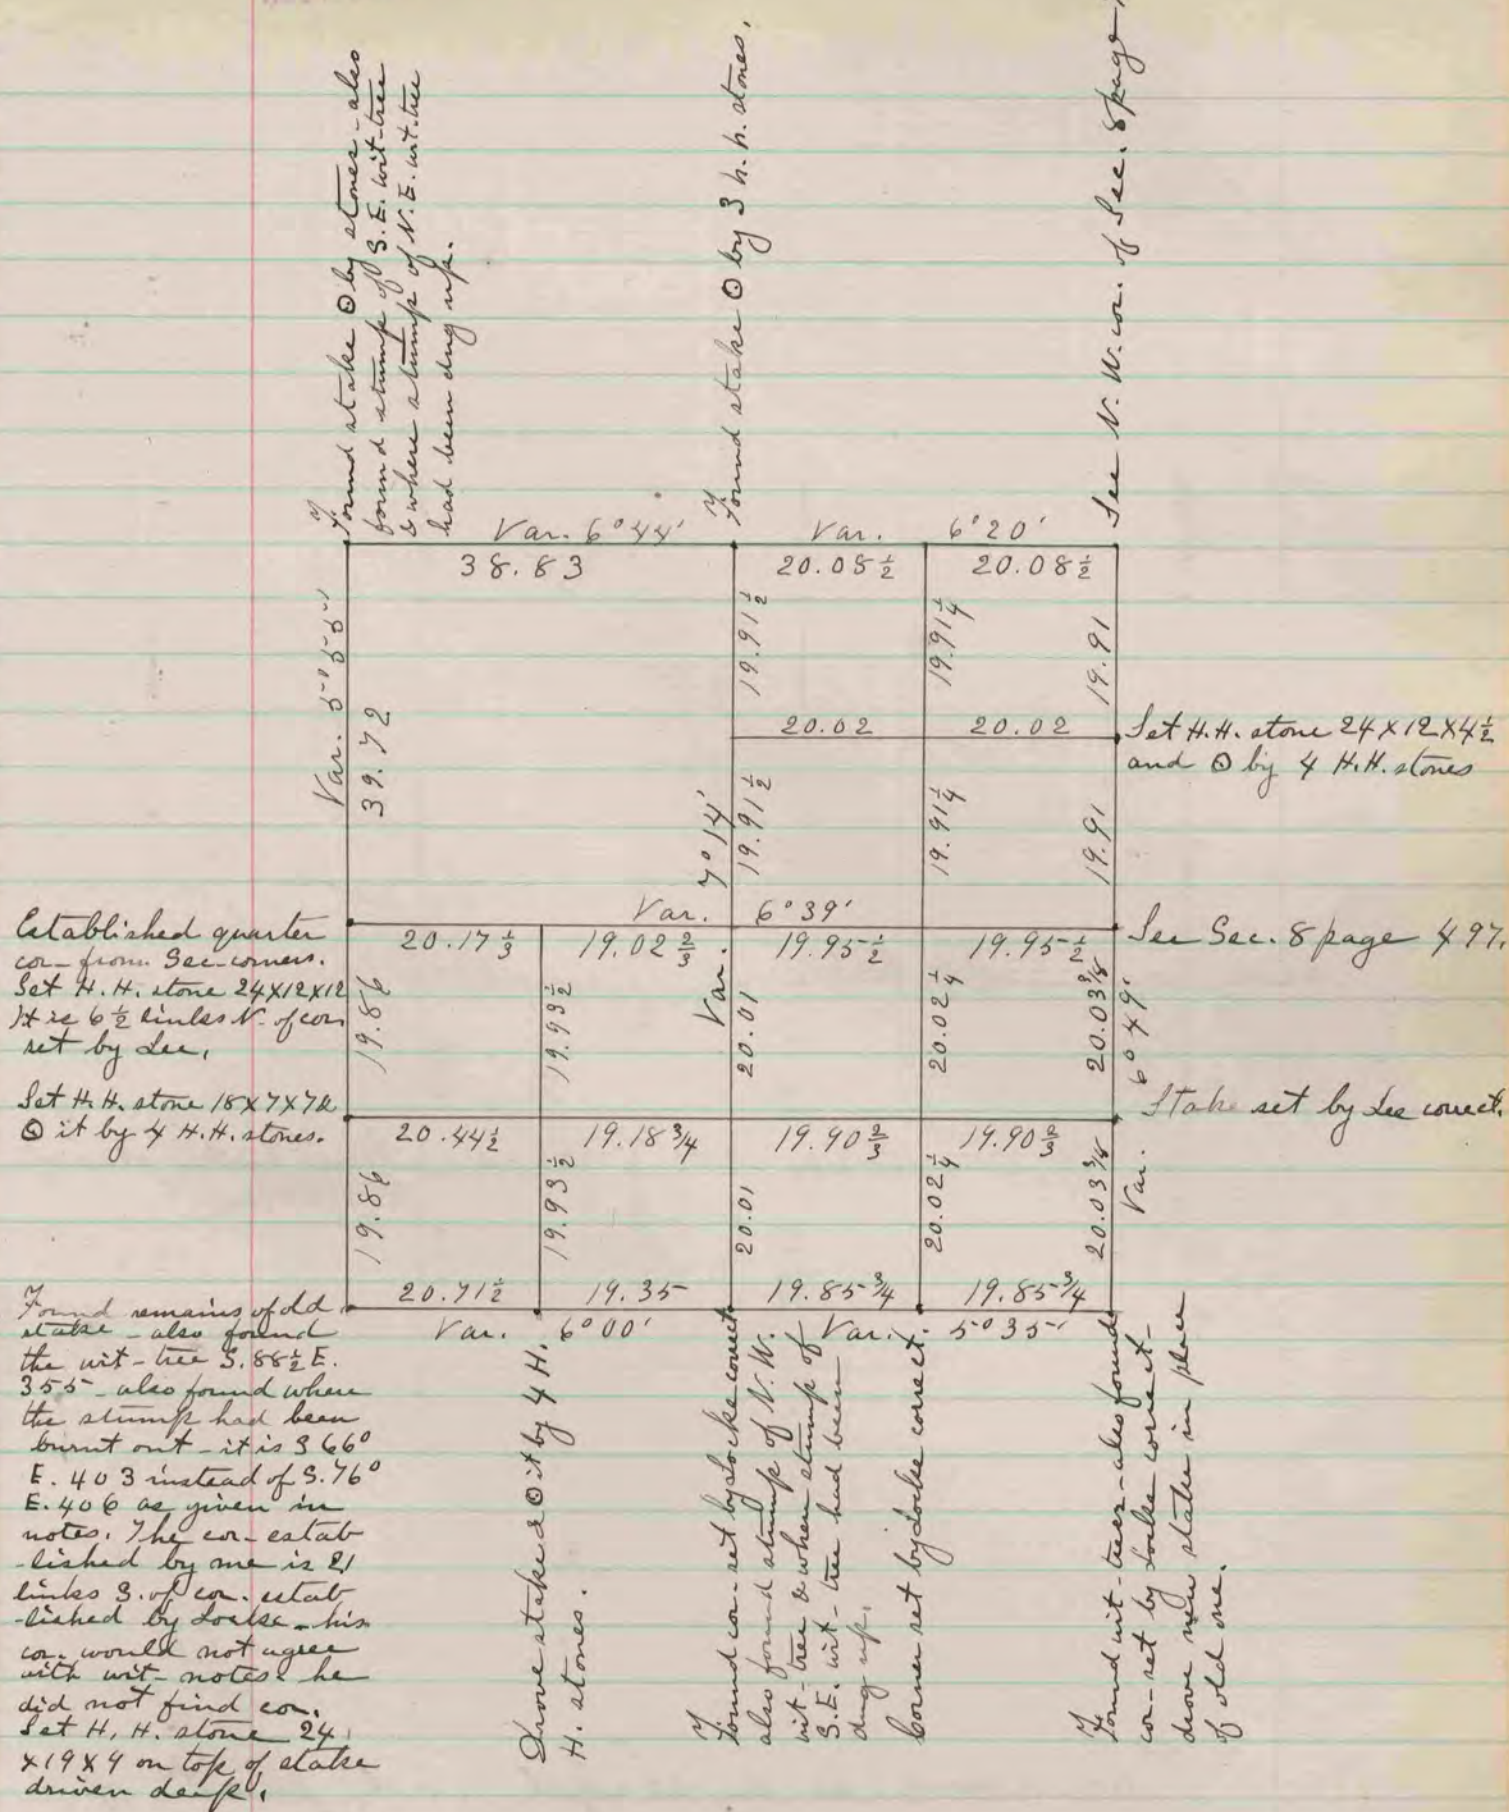 Found stake ⊙ by stones - also
found stump of S.E. wit-tree
& where stump of N.E. wit-tree
had been dug up.
Found stake ⊙ by 3 h.h. stones.
See N.W. cor. of Sec. 8 page
Var. 6°44'
Var. 6°20'
38.83
20.08½
20.08½
Var. 5°55'
39.72
19.91½
19.91¼
19.91
20.02
20.02
Set H.H. stone 24×12×4½
and ⊙ by 4 H.H. stones
19.91½
19.91¼
19.91
Var. 7°14'
Var. 6°39'
Established quarter
cor- from Sec-corners.
Set H.H. stone 24×12×12
It is 6½ links N. of cor.
set by Lee.
20.17⅓
19.02⅔
19.95½
19.95½
See Sec. 8 page 497.
19.86
19.93½
20.01
20.02¼
20.03⅜
Var. 6°49'
Set H.H. stone 18×7×7 &
⊙ it by 4 H.H. stones.
20.44½
19.18¾
19.90⅔
19.90⅔
Stake set by Lee correct.
19.86
19.93½
20.01
20.02¼
20.03⅜
20.71½
19.35
19.85¾
19.85¾
Var. 6°00'
Var. 5°35'
Found remains of old
stake - also found
the wit-tree S.88½ E.
355 - also found where
the stump had been
burnt out - it is S 66°
E. 403 instead of S.76°
E. 406 as given in
notes. The cor- estab
-lished by me is 21
links S. of cor. estab
-lished by Locke - his
cor. would not agree
with wit- notes & he
did not find cor.
Set H.H. stone 24
×19×4 on top of stake
driven deep.
Drove stake & ⊙ it by 4 H.
H. stones.
Found cor- set by Locke correct
also found stump of N.W.
wit-tree & where stump of
S.E. wit-tree had been
dug up.
Corner set by Locke correct
Found wit-trees - also found
cor- set by Locke correct-
drove new stake in place
of old one.